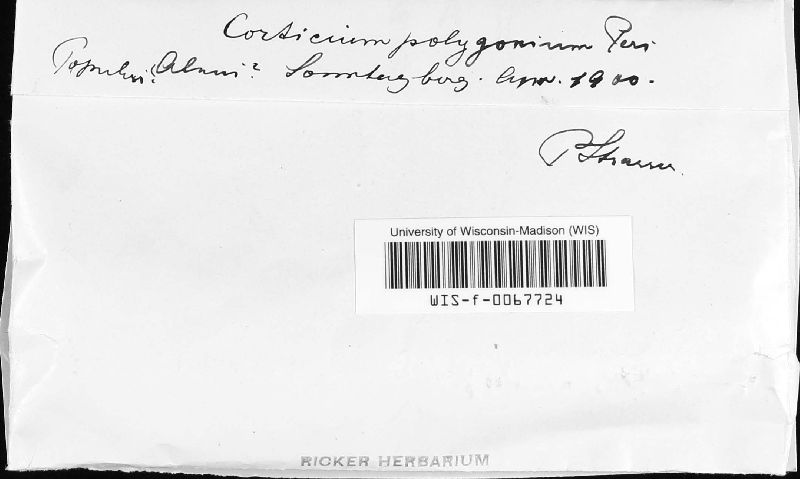 Corticium polygonium Pers
Populus? Alnus? Sonntagberg. Apr. 1900.
P Strasser.
University of Wisconsin-Madison (WIS)
WIS-f-0067724
RICKER HERBARIUM